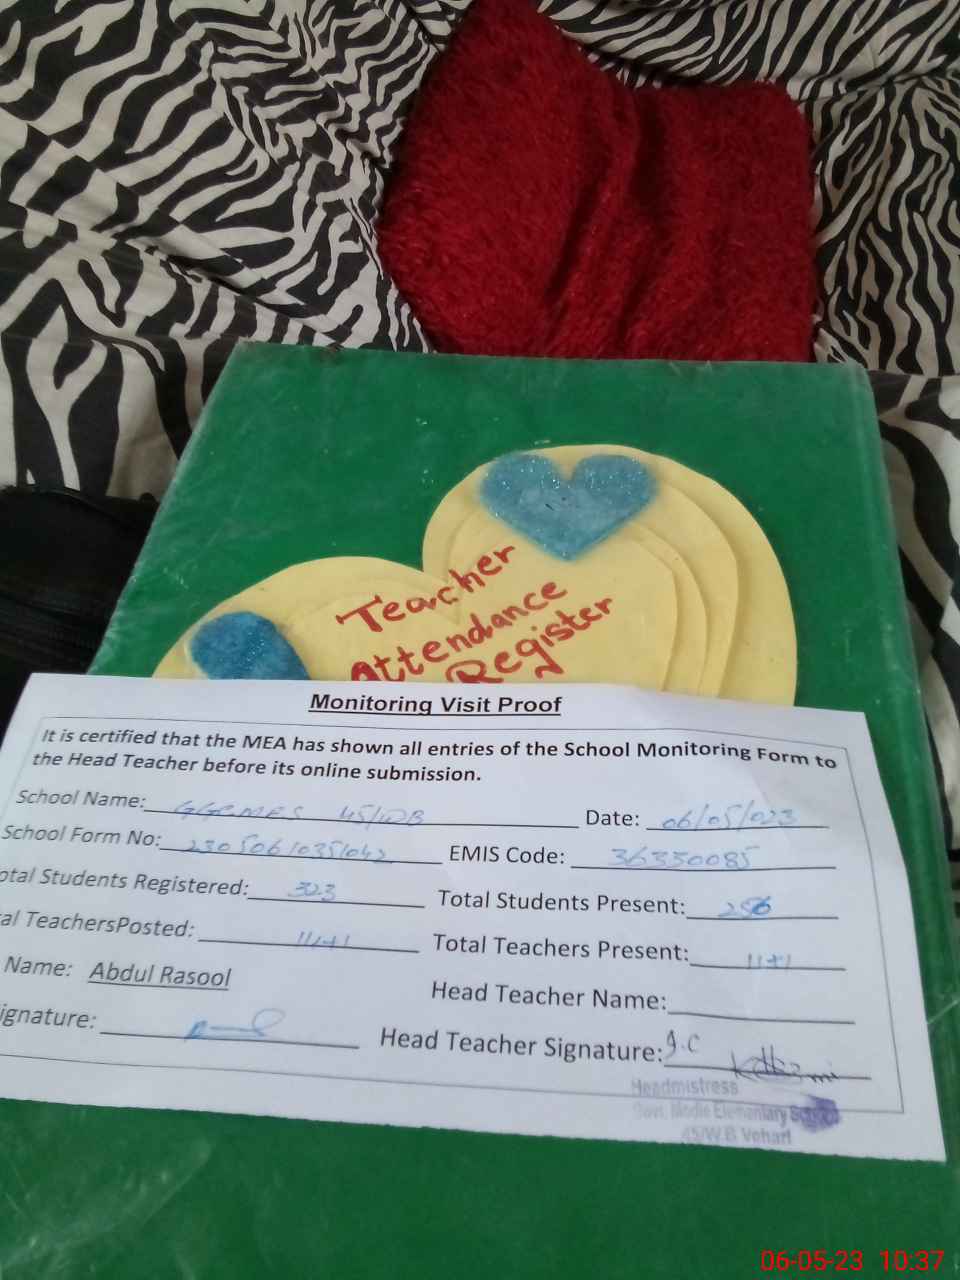 Teacher
Attendance
Register
Monitoring Visit Proof
It is certified that the MEA has shown all entries of the School Monitoring Form to
the Head Teacher before its online submission.
School Name: 45/WB Date: 06/05/023
School Form No: EMIS Code: 36330085
otal Students Registered: 323 Total Students Present: 256
al TeachersPosted: 11+1 Total Teachers Present: 11+1
Name: Abdul Rasool Head Teacher Name:
ignature: Head Teacher Signature: J.C
Headmistress
Govt. Modle Elementary School
45/W.B Vehari
06-05-23 10:37